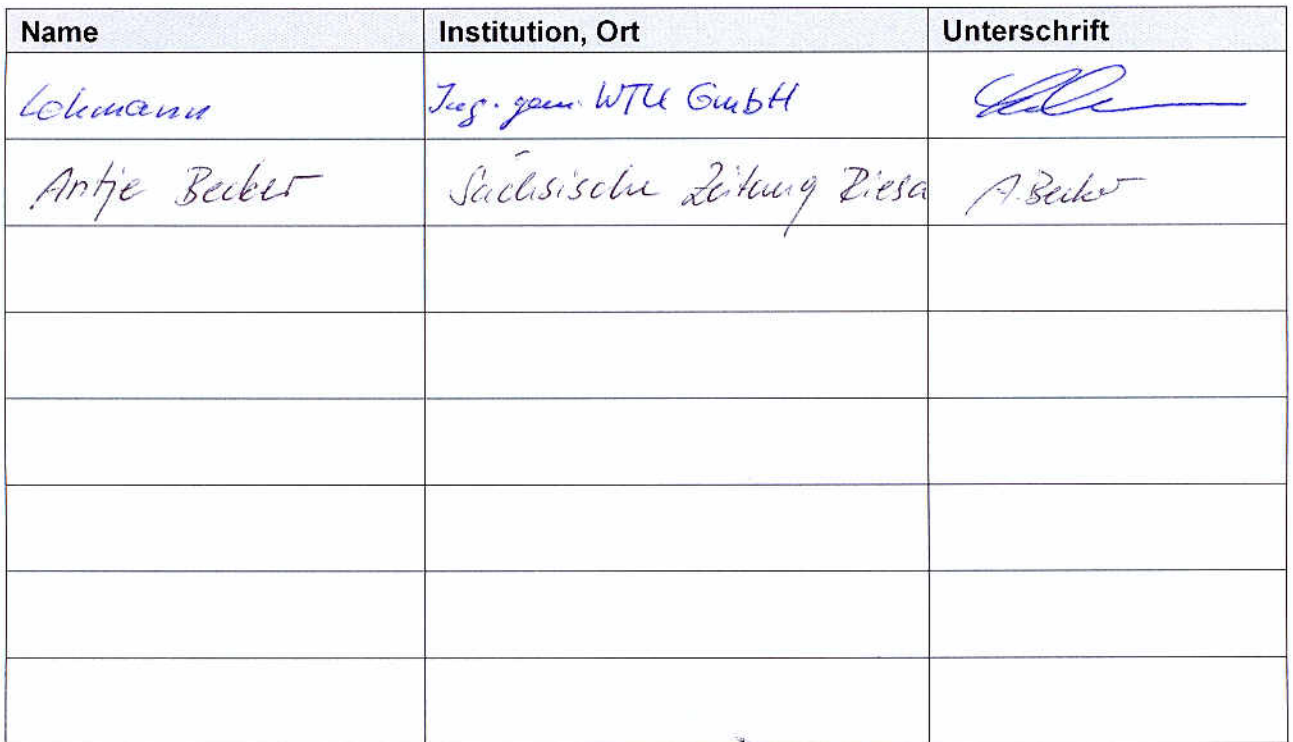 Name Institution, Ort Unterschrift
Lohmann Ing. gem. WTU GmbH
Antje Becker Sächsische Zeitung Riesa A. Becker